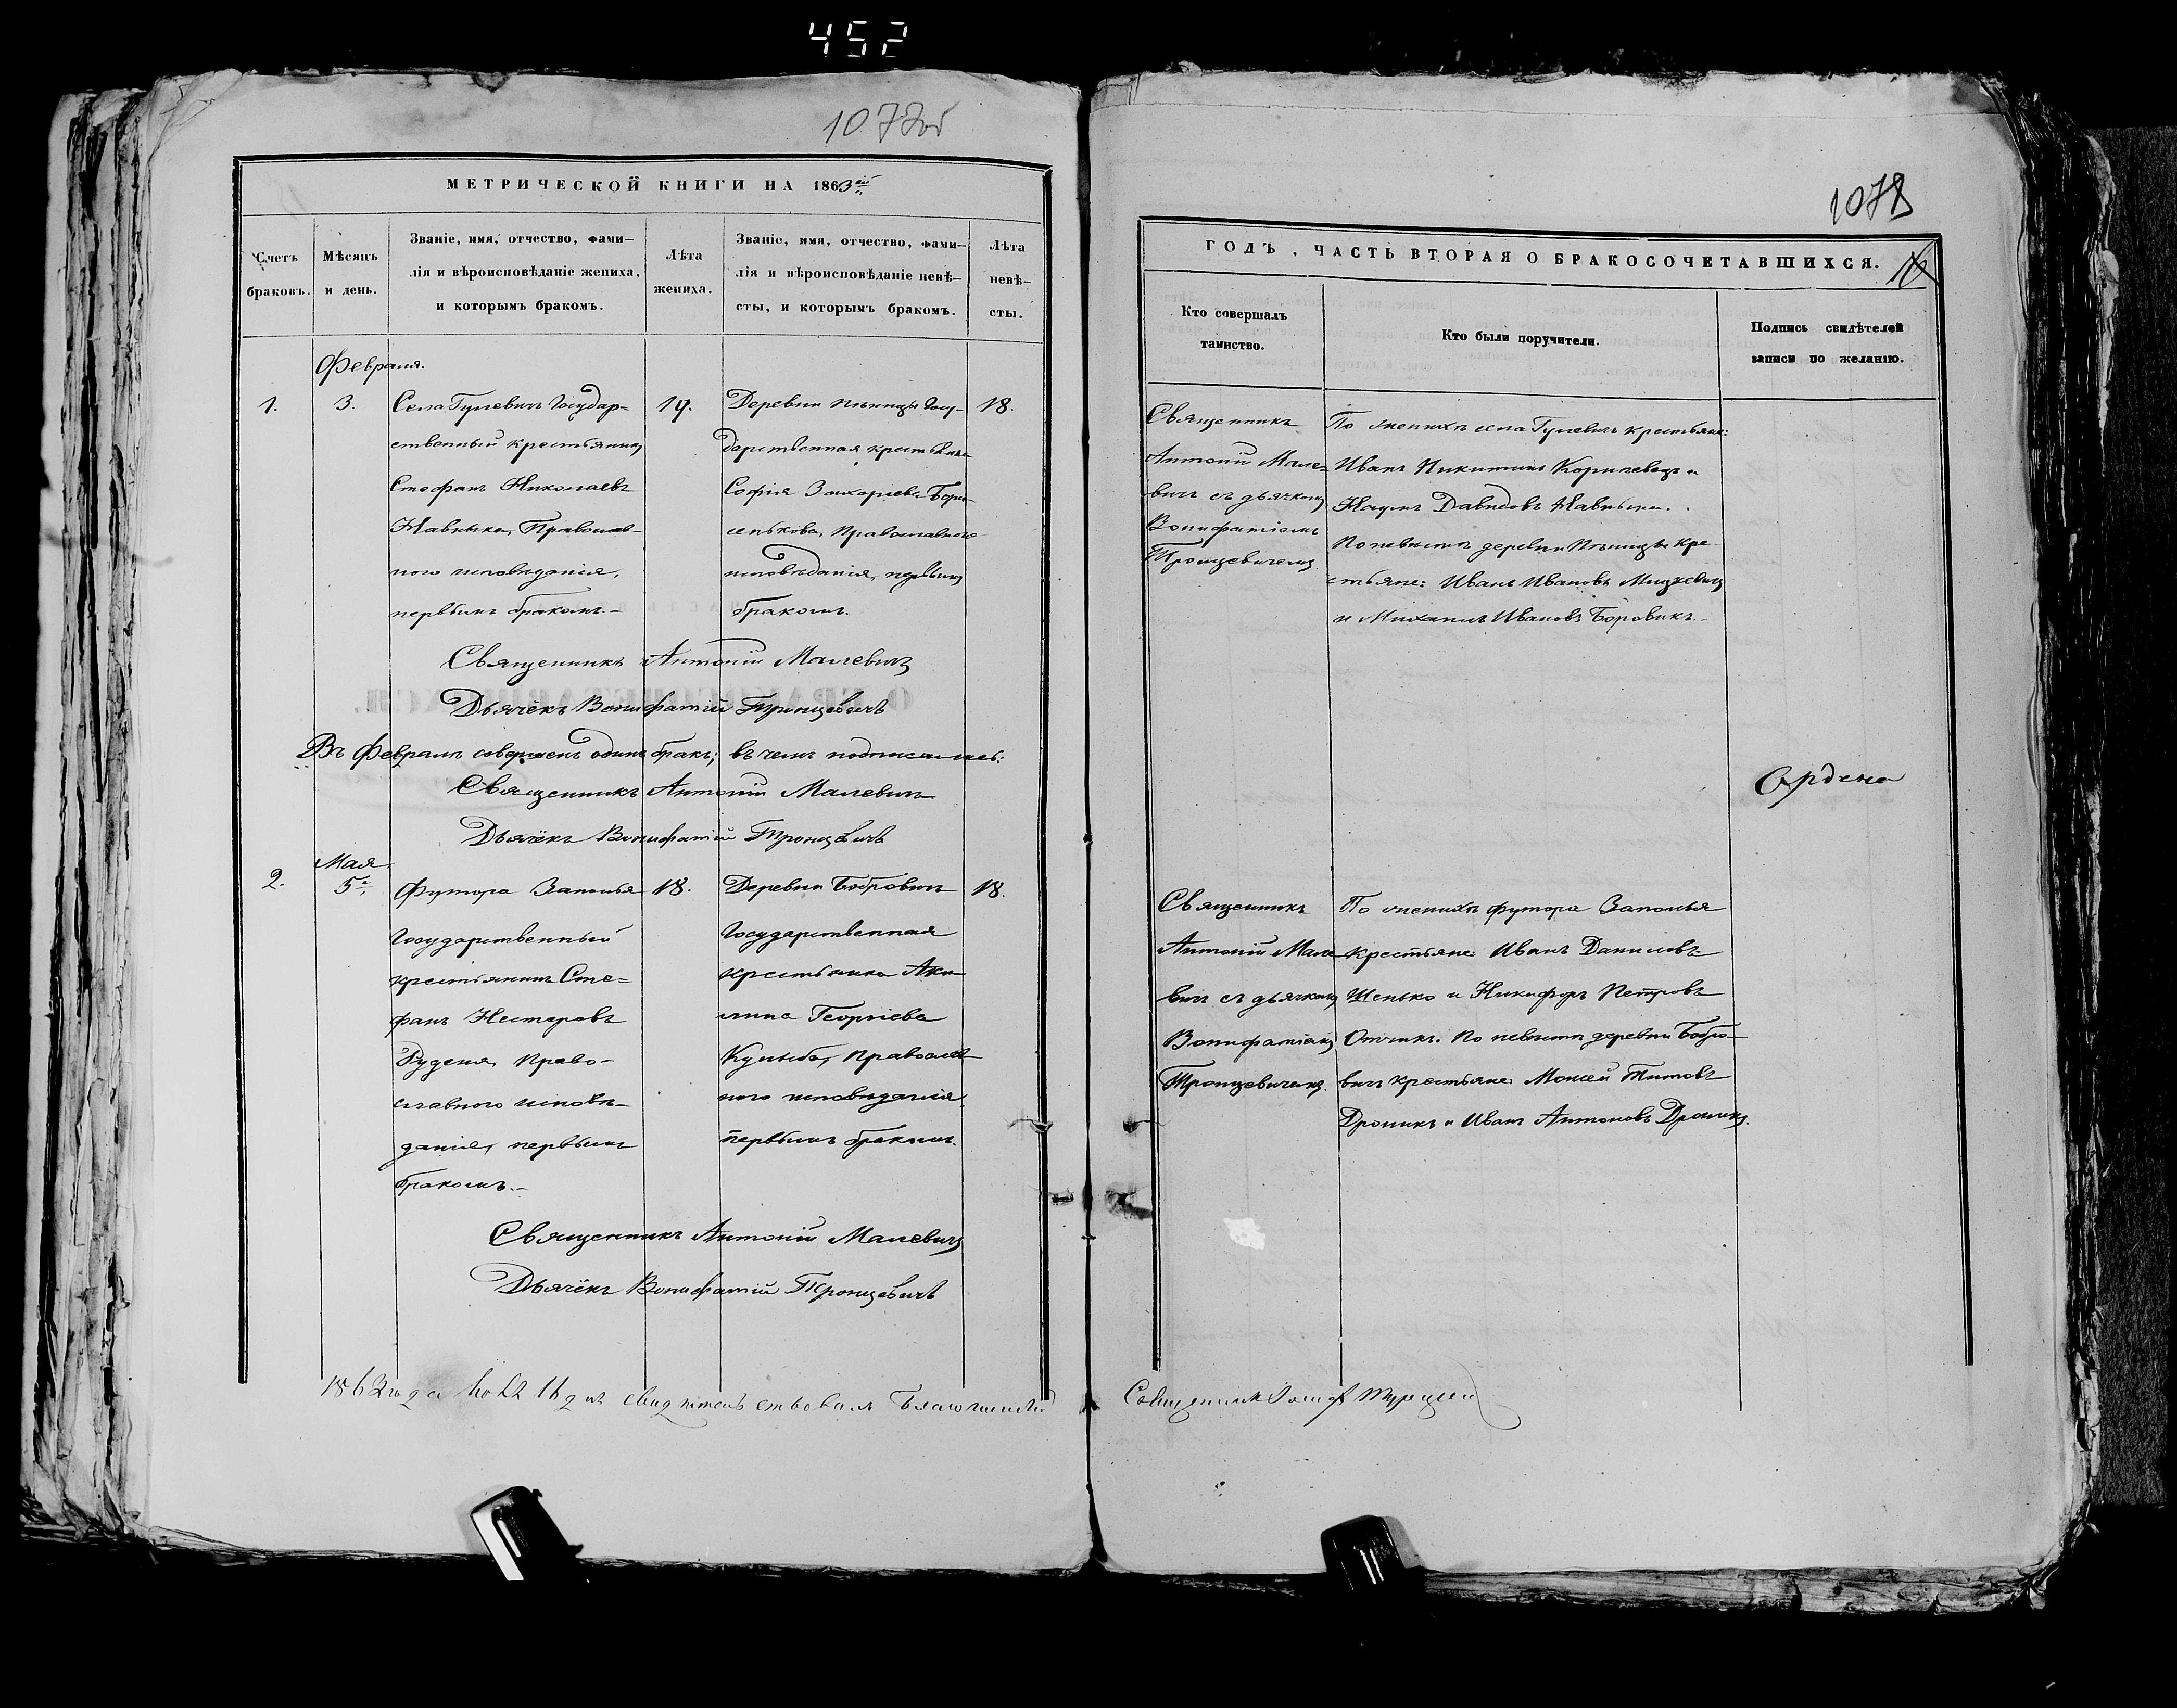 452
1077об
МЕТРИЧЕСКОЙ КНИГИ НА 1863ій
Счетъ браковъ.
Мѣсяцъ и день.
Званіе, имя, отчество, фами-
лія и вѣроисповѣданіе жениха,
и которымъ бракомъ.
Лѣта
жениха.
Званіе, имя, отчество, фами-
лія и вѣроисповѣданіе невѣ-
сты, и которымъ бракомъ.
Лѣта
невѣ-
сты.
Февраля.
1.
3.
Села Гулевичъ Государ=
ственный крестьянинъ
Стефанъ Николаевъ
Православ-
ного исповѣданія,
первымъ бракомъ.-
19.
Деревни Госу-
дарственная крестьянка
Софія Захаріева Бори-
сенькова, Православного
исповѣданія, первымъ
бракомъ.
18.
Священникъ Антоній Малевичъ
Дьячёкъ Вонифатій Тронцевичъ
Въ Февралѣ совершенъ одинъ бракъ; въ чемъ подписались:
Священникъ Антоній Малевичъ
Дьячёкъ Вонифатій Тронцевичъ
2.
Мая
5е,
Футора Заполья
Государственный
крестьянинъ Сте=
фанъ Нестеровъ
Руденя, Право-
славного исповѣ-
данія, первымъ
бракомъ.-
18.
Деревни Бобровичъ
Государственная
крестьянка Аки-
лина Георгіева
Кулыба, Православ-
ного исповѣданія,
первымъ бракомъ.
18.
Священникъ Антоній Малевичъ
Дьячёкъ Вонифатій Тронцевичъ
186 года дня свидѣтельствовалъ Благочинный
1078
ГОДЪ, ЧАСТЬ ВТОРАЯ О БРАКОСОЧЕТАВШИХСЯ.
16
Кто совершалъ
таинство.
Кто были поручители.
Подпись свидѣтелей
записи по желанію.
Священникъ
Антоній Мале=
вичъ съ дьячкомъ
Вонифатіемъ
Тронцевичемъ.
По женихѣ села Гулевичъ крестьяне:
Иванъ Никитинъ Корниевецъ и
Наумъ Давидовъ
По невѣстѣ деревни кре-
стьяне: Иванъ Ивановъ Мицкевичъ
и Михаилъ Ивановъ Боровикъ.-
Священникъ
Антоній Мале-
вичъ съ дьячкомъ
Вонифатіемъ
Тронцевичемъ.
По женихѣ футора Заполья
крестьяне: Иванъ Даниловъ
Шенько и Никифоръ Петровъ
По невѣстѣ деревни Бобро-
вичъ крестьяне: Моисей Титовъ
Дроникъ и Иванъ Антоновъ Дроникъ.
Священникъ Іосифъ